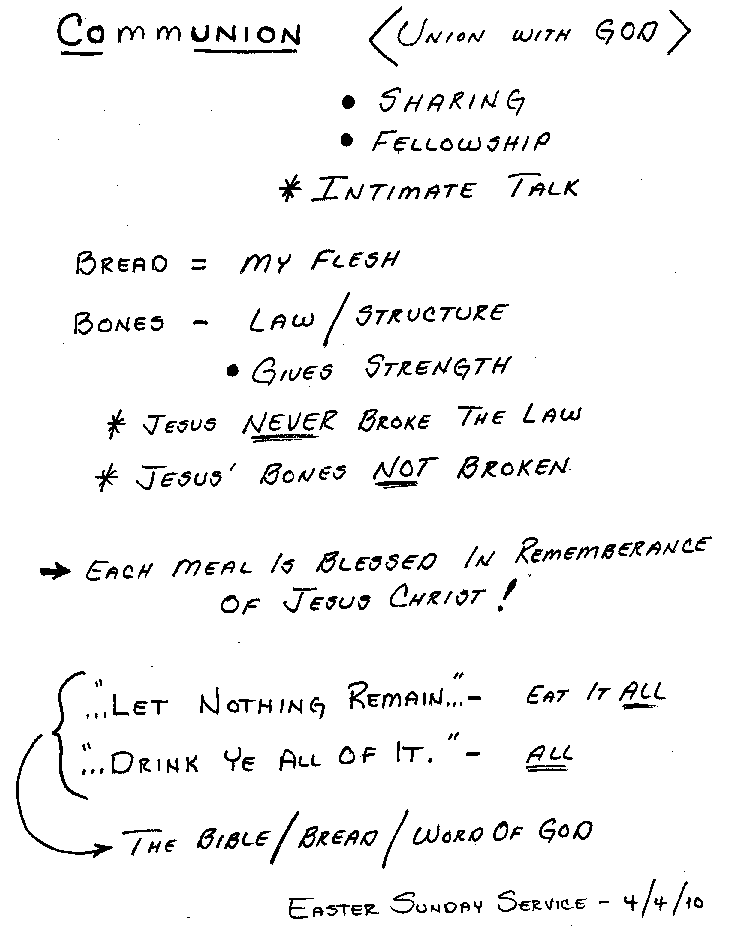 CommUNION <UNION WITH GOD>
• SHARING
• FELLOWSHIP
* INTIMATE TALK
BREAD = MY FLESH
BONES - LAW/STRUCTURE
• GIVES STRENGTH
* JESUS NEVER BROKE THE LAW
* JESUS' BONES NOT BROKEN
→ EACH MEAL IS BLESSED IN REMEMBERANCE
OF JESUS CHRIST!
"...LET NOTHING REMAIN..." - EAT IT ALL
"...DRINK YE ALL OF IT." - ALL
THE BIBLE/BREAD/WORD OF GOD
EASTER SUNDAY SERVICE - 4/4/10